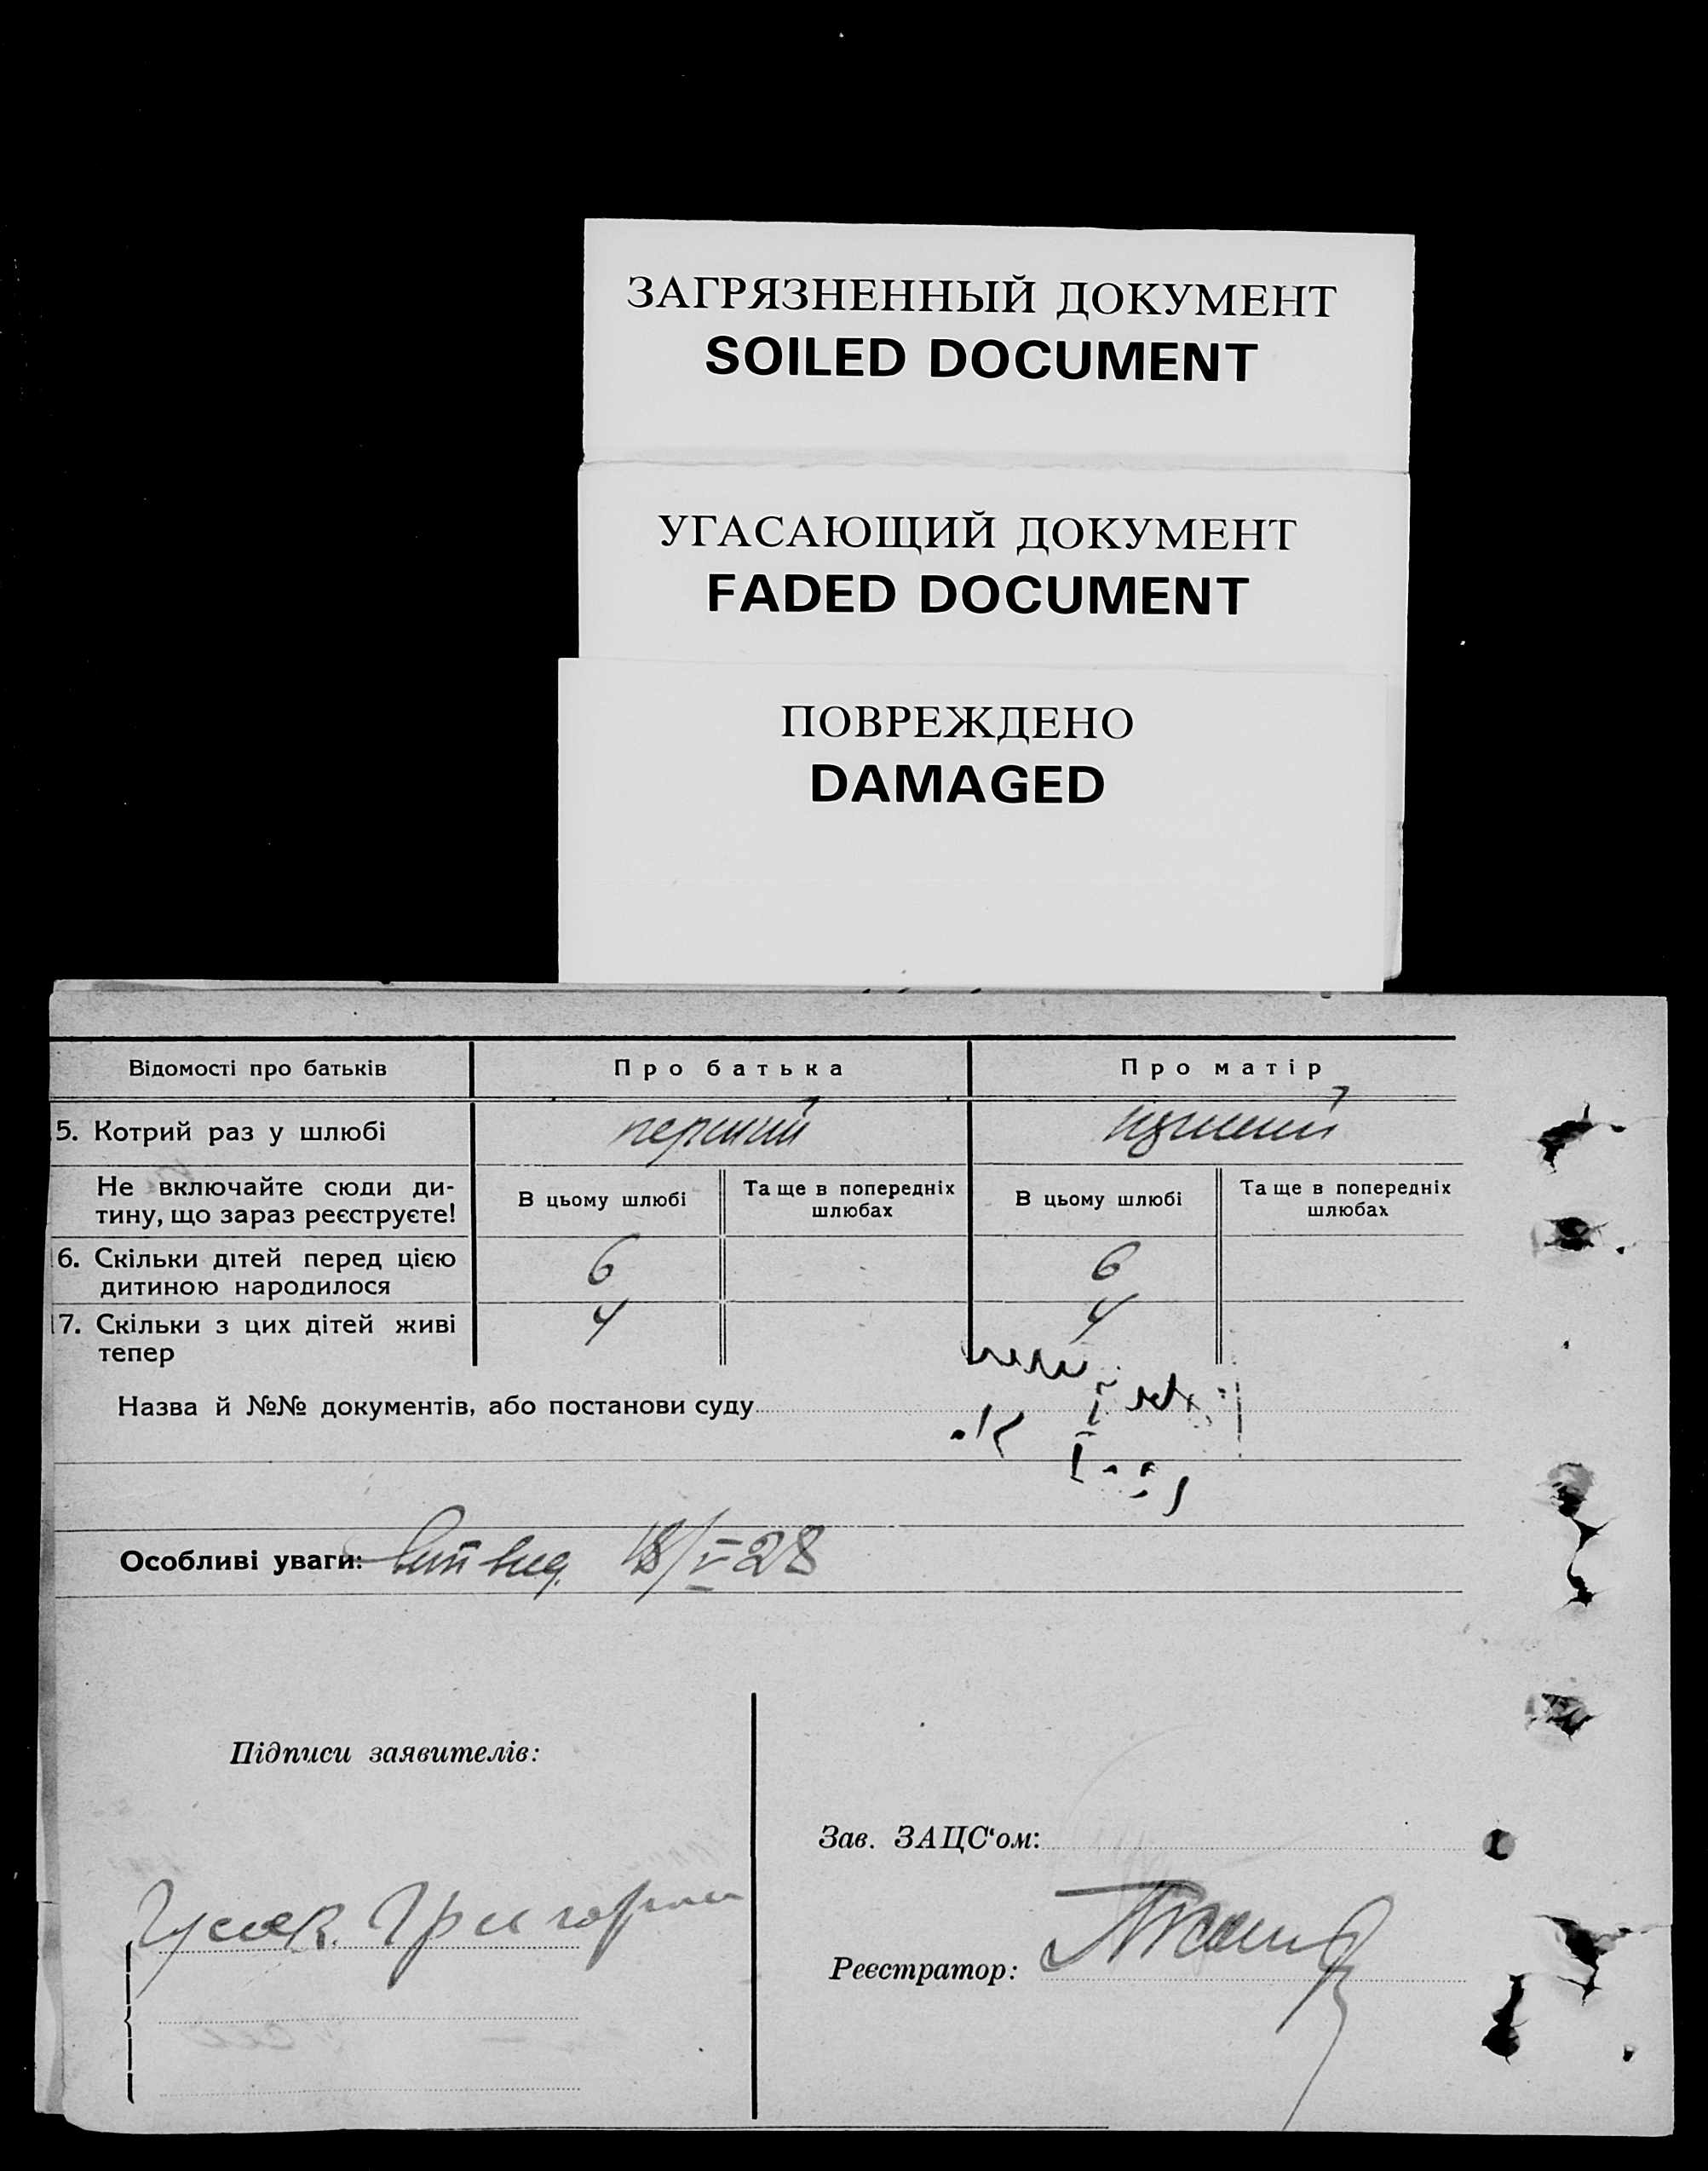 ЗАГРЯЗНЕННЫЙ ДОКУМЕНТ
SOILED DOCUMENT
УГАСАЮЩИЙ ДОКУМЕНТ
FADED DOCUMENT
ПОВРЕЖДЕНО
DAMAGED
Відомості про батьків Про батька Про матір
5. Котрий раз у шлюбі перший
Не включайте сюди ди-
тину, що зараз реєструєте!
В цьому шлюбі
Та ще в попередніх
шлюбах
В цьому шлюбі
Та ще в попередніх
шлюбах
6. Скільки дітей перед цією
дитиною народилося
6 6
7. Скільки з цих дітей живі
тепер
4 4
Назва й №№ документів, або постанови суду
Особливі уваги: 18/V 28
Підписи заявителів:
Зав. ЗАЦС'ом:
Григорий
Реєстратор: